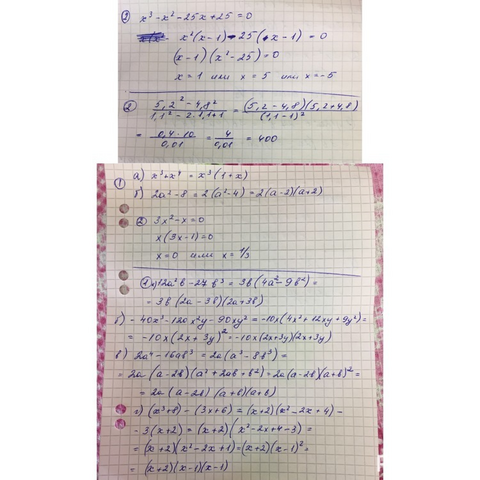 3) x³ - x² - 25x + 25 = 0
x²(x - 1) - 25(x - 1) = 0
(x - 1)(x² - 25) = 0
x = 1 или x = 5 или x = -5
2) (5,2² - 4,8²)/(1,1² - 2·1,1 + 1) = (5,2 - 4,8)(5,2 + 4,8)/(1,1 - 1)²
= 0,4·10/0,01 = 4/0,01 = 400
1) а) x³ + x⁴ = x³(1 + x)
б) 2a² - 8 = 2(a² - 4) = 2(a - 2)(a + 2)
2) 3x² - x = 0
x(3x - 1) = 0
x = 0 или x = 1/3
1) 12a²b - 27b³ = 3b(4a² - 9b²) =
= 3b(2a - 3b)(2a + 3b)
б) - 40x³ - 120x²y - 90xy² = -10x(4x² + 12xy + 9y²) =
= -10x(2x + 3y)² = -10x(2x + 3y)(2x + 3y)
в) 2a⁴ - 16ab³ = 2a(a³ - 8b³) =
= 2a(a - 2b)(a² + 2ab + b²) = 2a(a - 2b)(a + b)² =
= 2a(a - 2b)(a + b)(a + b)
(x³ + 8) - (3x + 6) = (x + 2)(x² - 2x + 4) -
- 3(x + 2) = (x + 2)(x² - 2x + 4 - 3) =
= (x + 2)(x² - 2x + 1) = (x + 2)(x - 1)² =
= (x + 2)(x - 1)(x - 1)